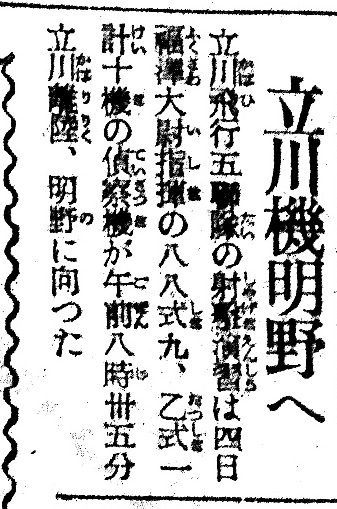 立川機明野へ
立川飛行五聯隊の射撃演習は四日
福澤大尉指揮の八八式九、乙式一
計十機の偵察機が午前八時卅五分
立川離陸、明野に向つた